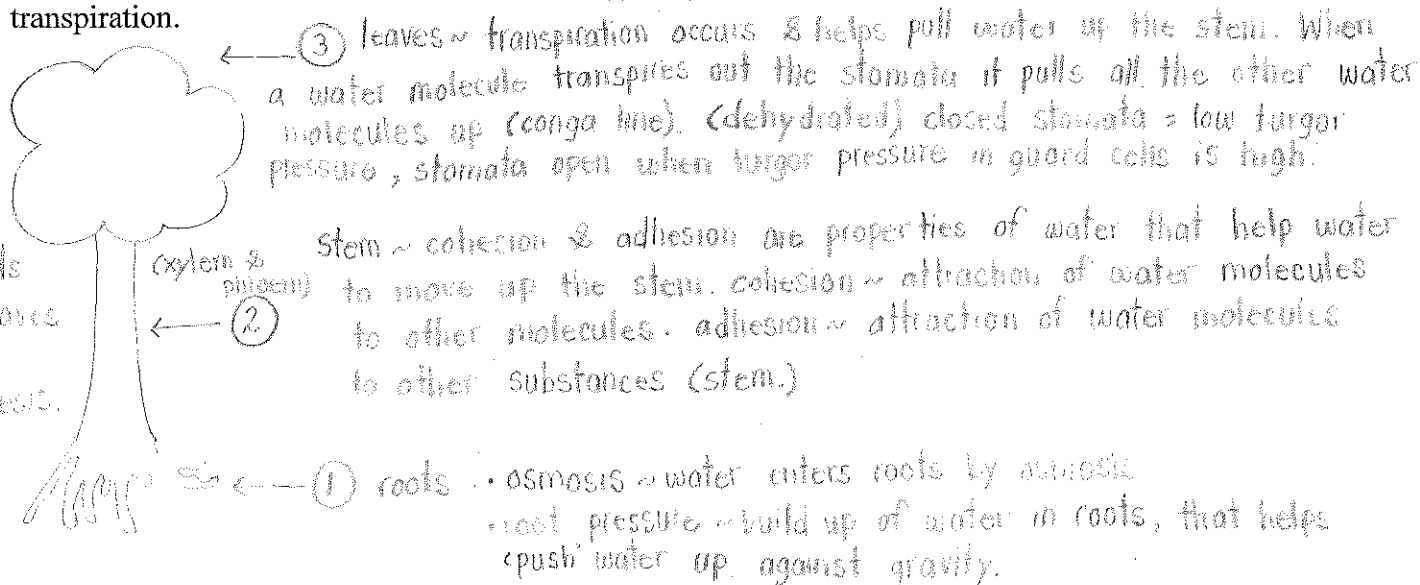 transpiration.
③ leaves ~ transpiration occurs & helps pull water up the stem. When
a water molecule transpires out the stomata it pulls all the other water
molecules up (conga line). (dehydrated) closed stomata = low turgor
pressure, stomata open when turgor pressure in guard cells is high.
Stem ~ cohesion & adhesion are properties of water that help water
(xylem &
phloem) to move up the stem. cohesion ~ attraction of water molecules
② to other molecules. adhesion ~ attraction of water molecules
to other substances (stem.)
① roots · osmosis ~ water enters roots by osmosis
· root pressure ~ build up of water in roots, that helps
push water up against gravity.